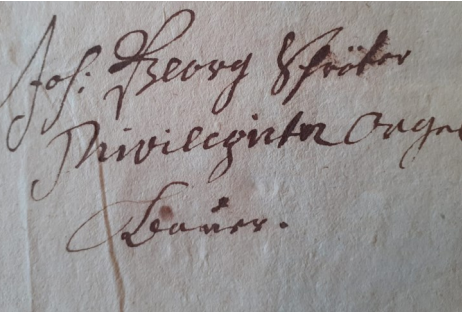 Joh: Georg Schröter
Privilegirter Orgel
Bauer.